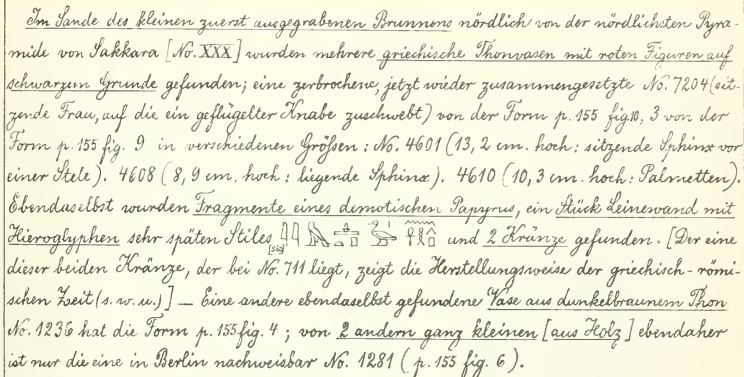 Im Sande des kleinen zuerst ausgegrabenen Brunnens nördlich von der nördlichsten Pyra-
mide von Sakkara [No. XXX] wurden mehrere griechische Thonvasen mit roten Figuren auf
schwarzem Grunde gefunden; eine zerbrochene, jetzt wieder zusammengesetzte No. 7204 (sit-
zende Frau, auf die ein geflügelter Knabe zuschwebt) von der Form p. 155 fig. 10, 3 von der
Form p. 155 fig. 9 in verschiedenen Größen: No. 4601 (13,2 cm. hoch: sitzende Sphinx vor
einer Stele). 4608 (8,9 cm. hoch: liegende Sphinx). 4610 (10,3 cm. hoch: Palmetten).
Ebendaselbst wurden Fragmente eines demotischen Papyrus, ein Stück Leinewand mit
Hieroglyphen sehr späten Stiles [sic] und 2 Kränze gefunden. [Der eine
dieser beiden Kränze, der bei No. 711 liegt, zeigt die Herstellungsweise der griechisch-römi-
schen Zeit (s. w. u.)] — Eine andere ebendaselbst gefundene Vase aus dunkelbraunem Thon
No. 1236 hat die Form p. 155 fig. 4; von 2 andern ganz kleinen [aus Holz] ebendaher
ist nur die eine in Berlin nachweisbar No. 1281 (p. 155 fig. 6).